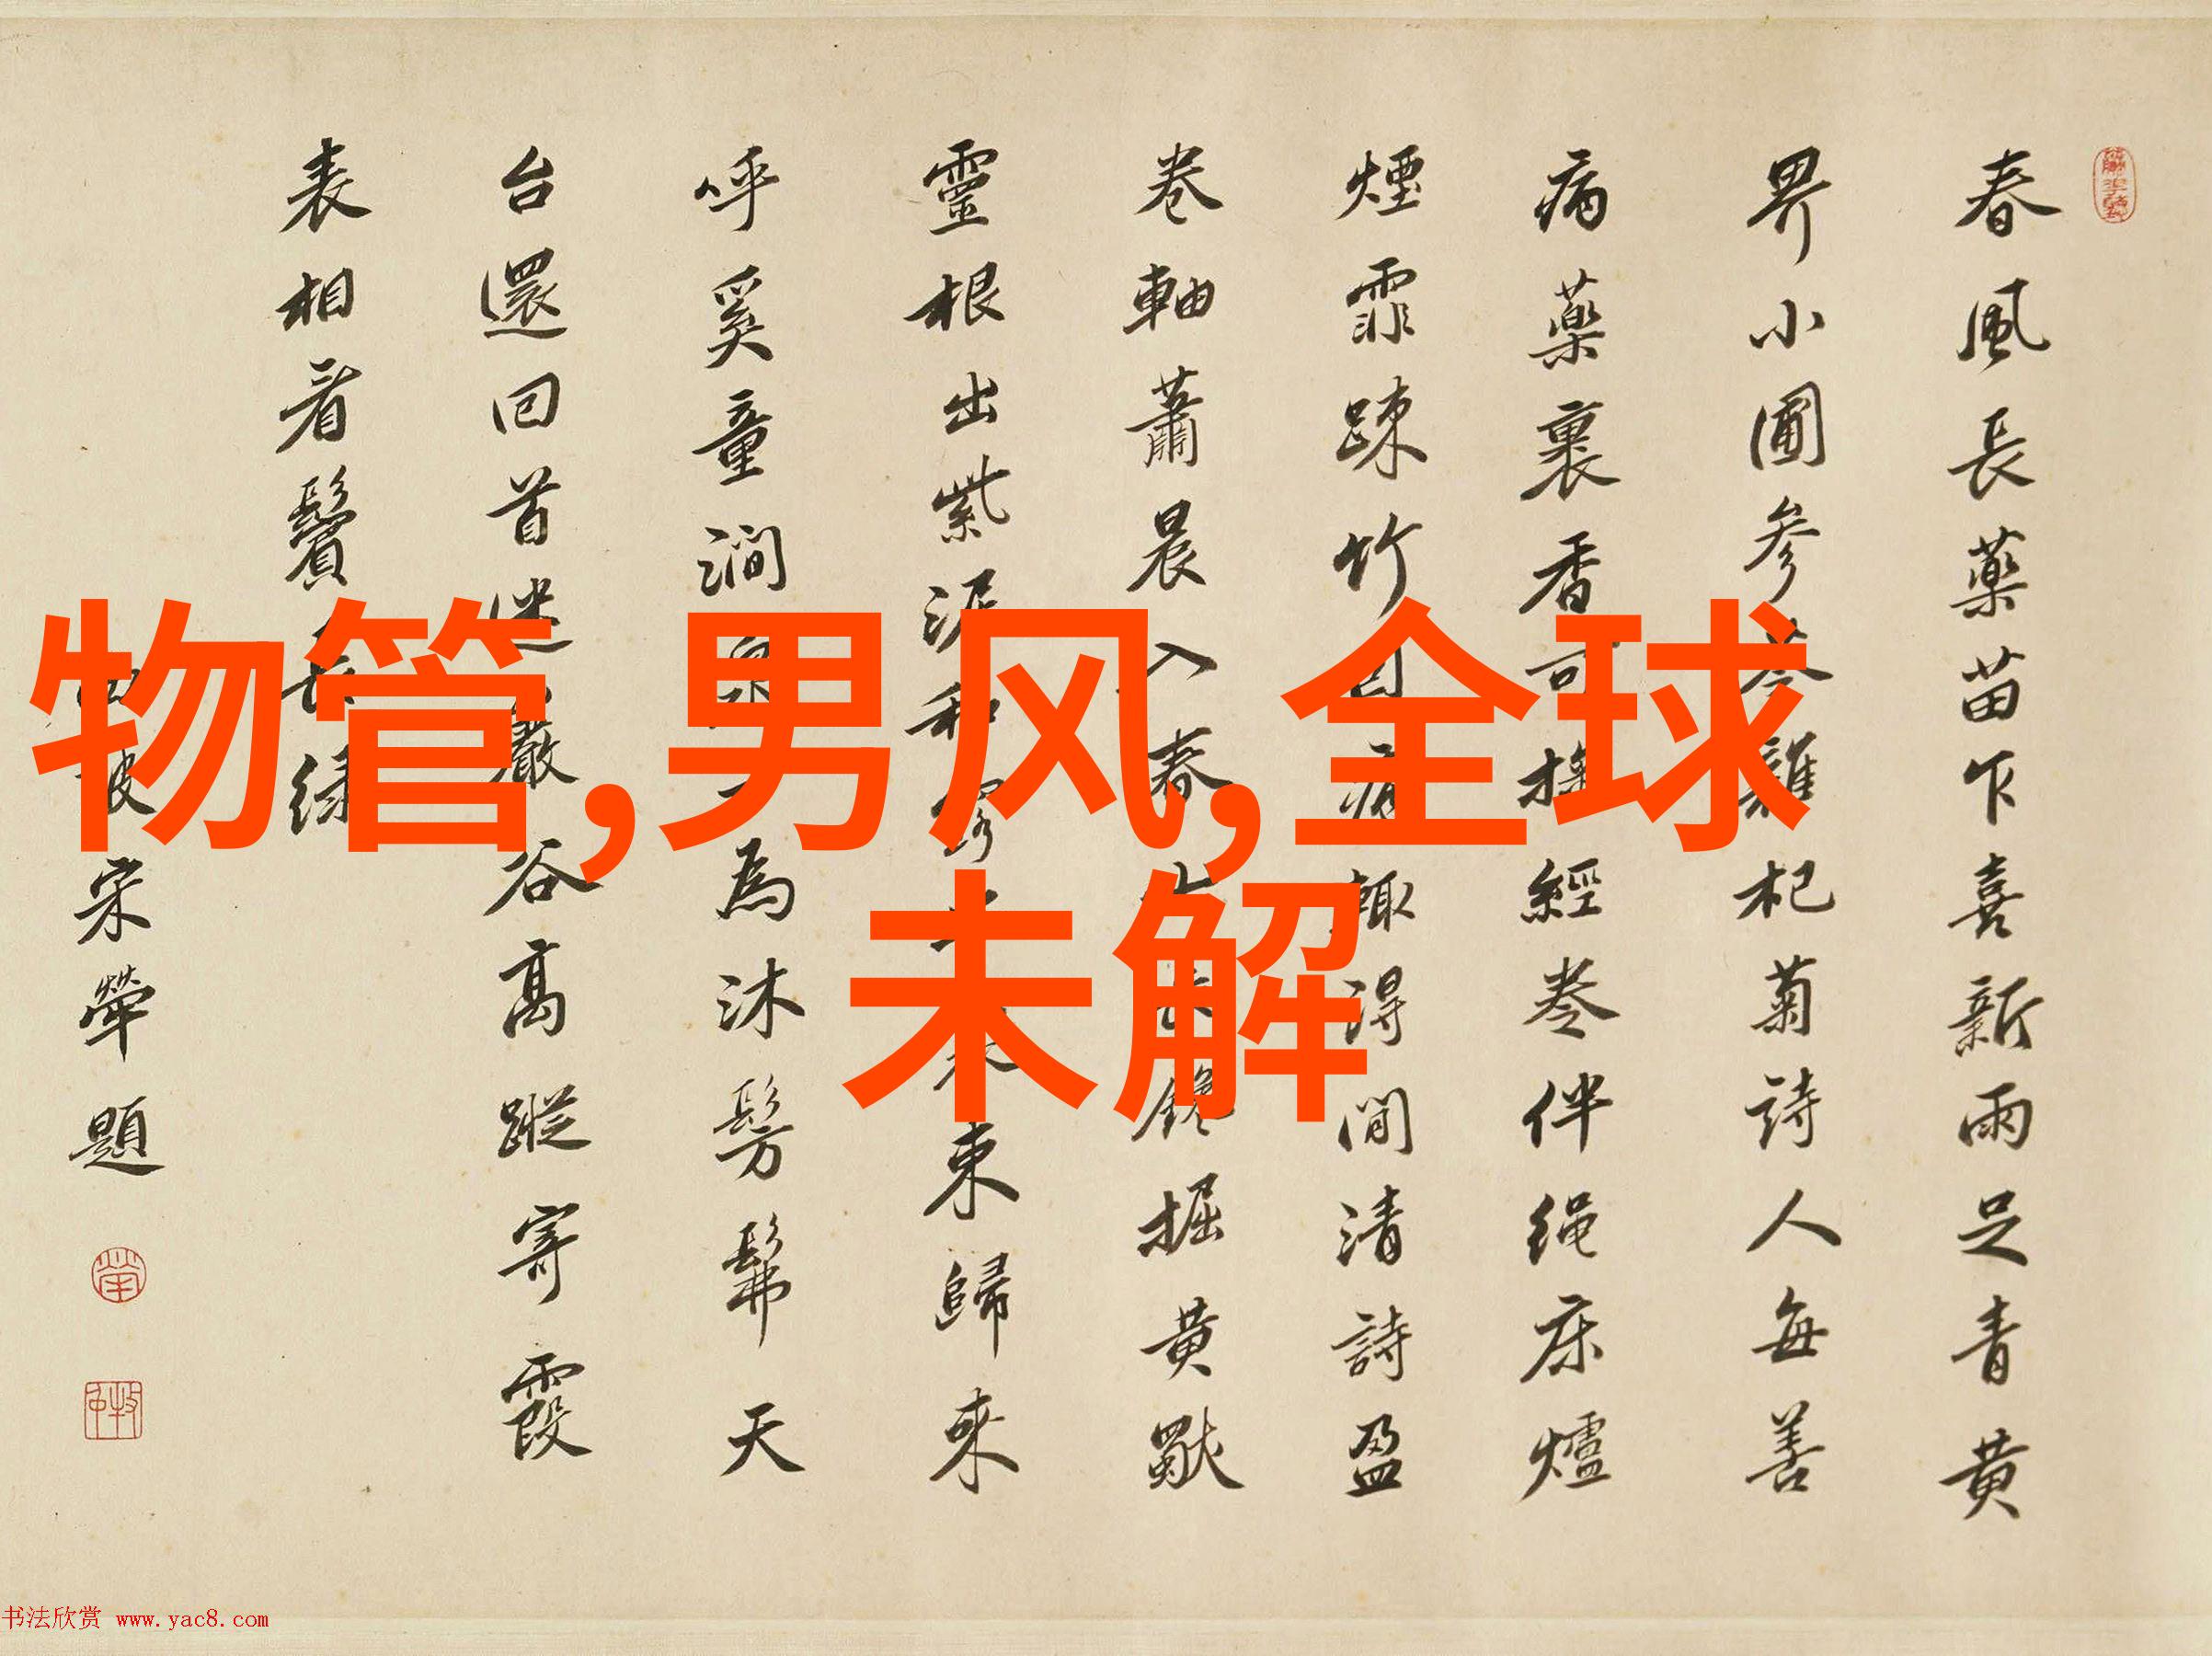 物管,男风,全球
未解
春風長薬苗乍喜新雨足青黄
畀小圃参苓雜杞菊詩人每善
病薬裹香可
経巻伴绳床爐
煙霏踈竹
輙得閒清詩盈
巻軸蕭晨入春
掘黄獻
靈根出紫泥和
東歸来
呼奚童澗
為沐髣髴天
台還回首迷巖谷高蹤寄霞
表相看鬢長緑
宋犖題
书法欣赏 www.yac8.com